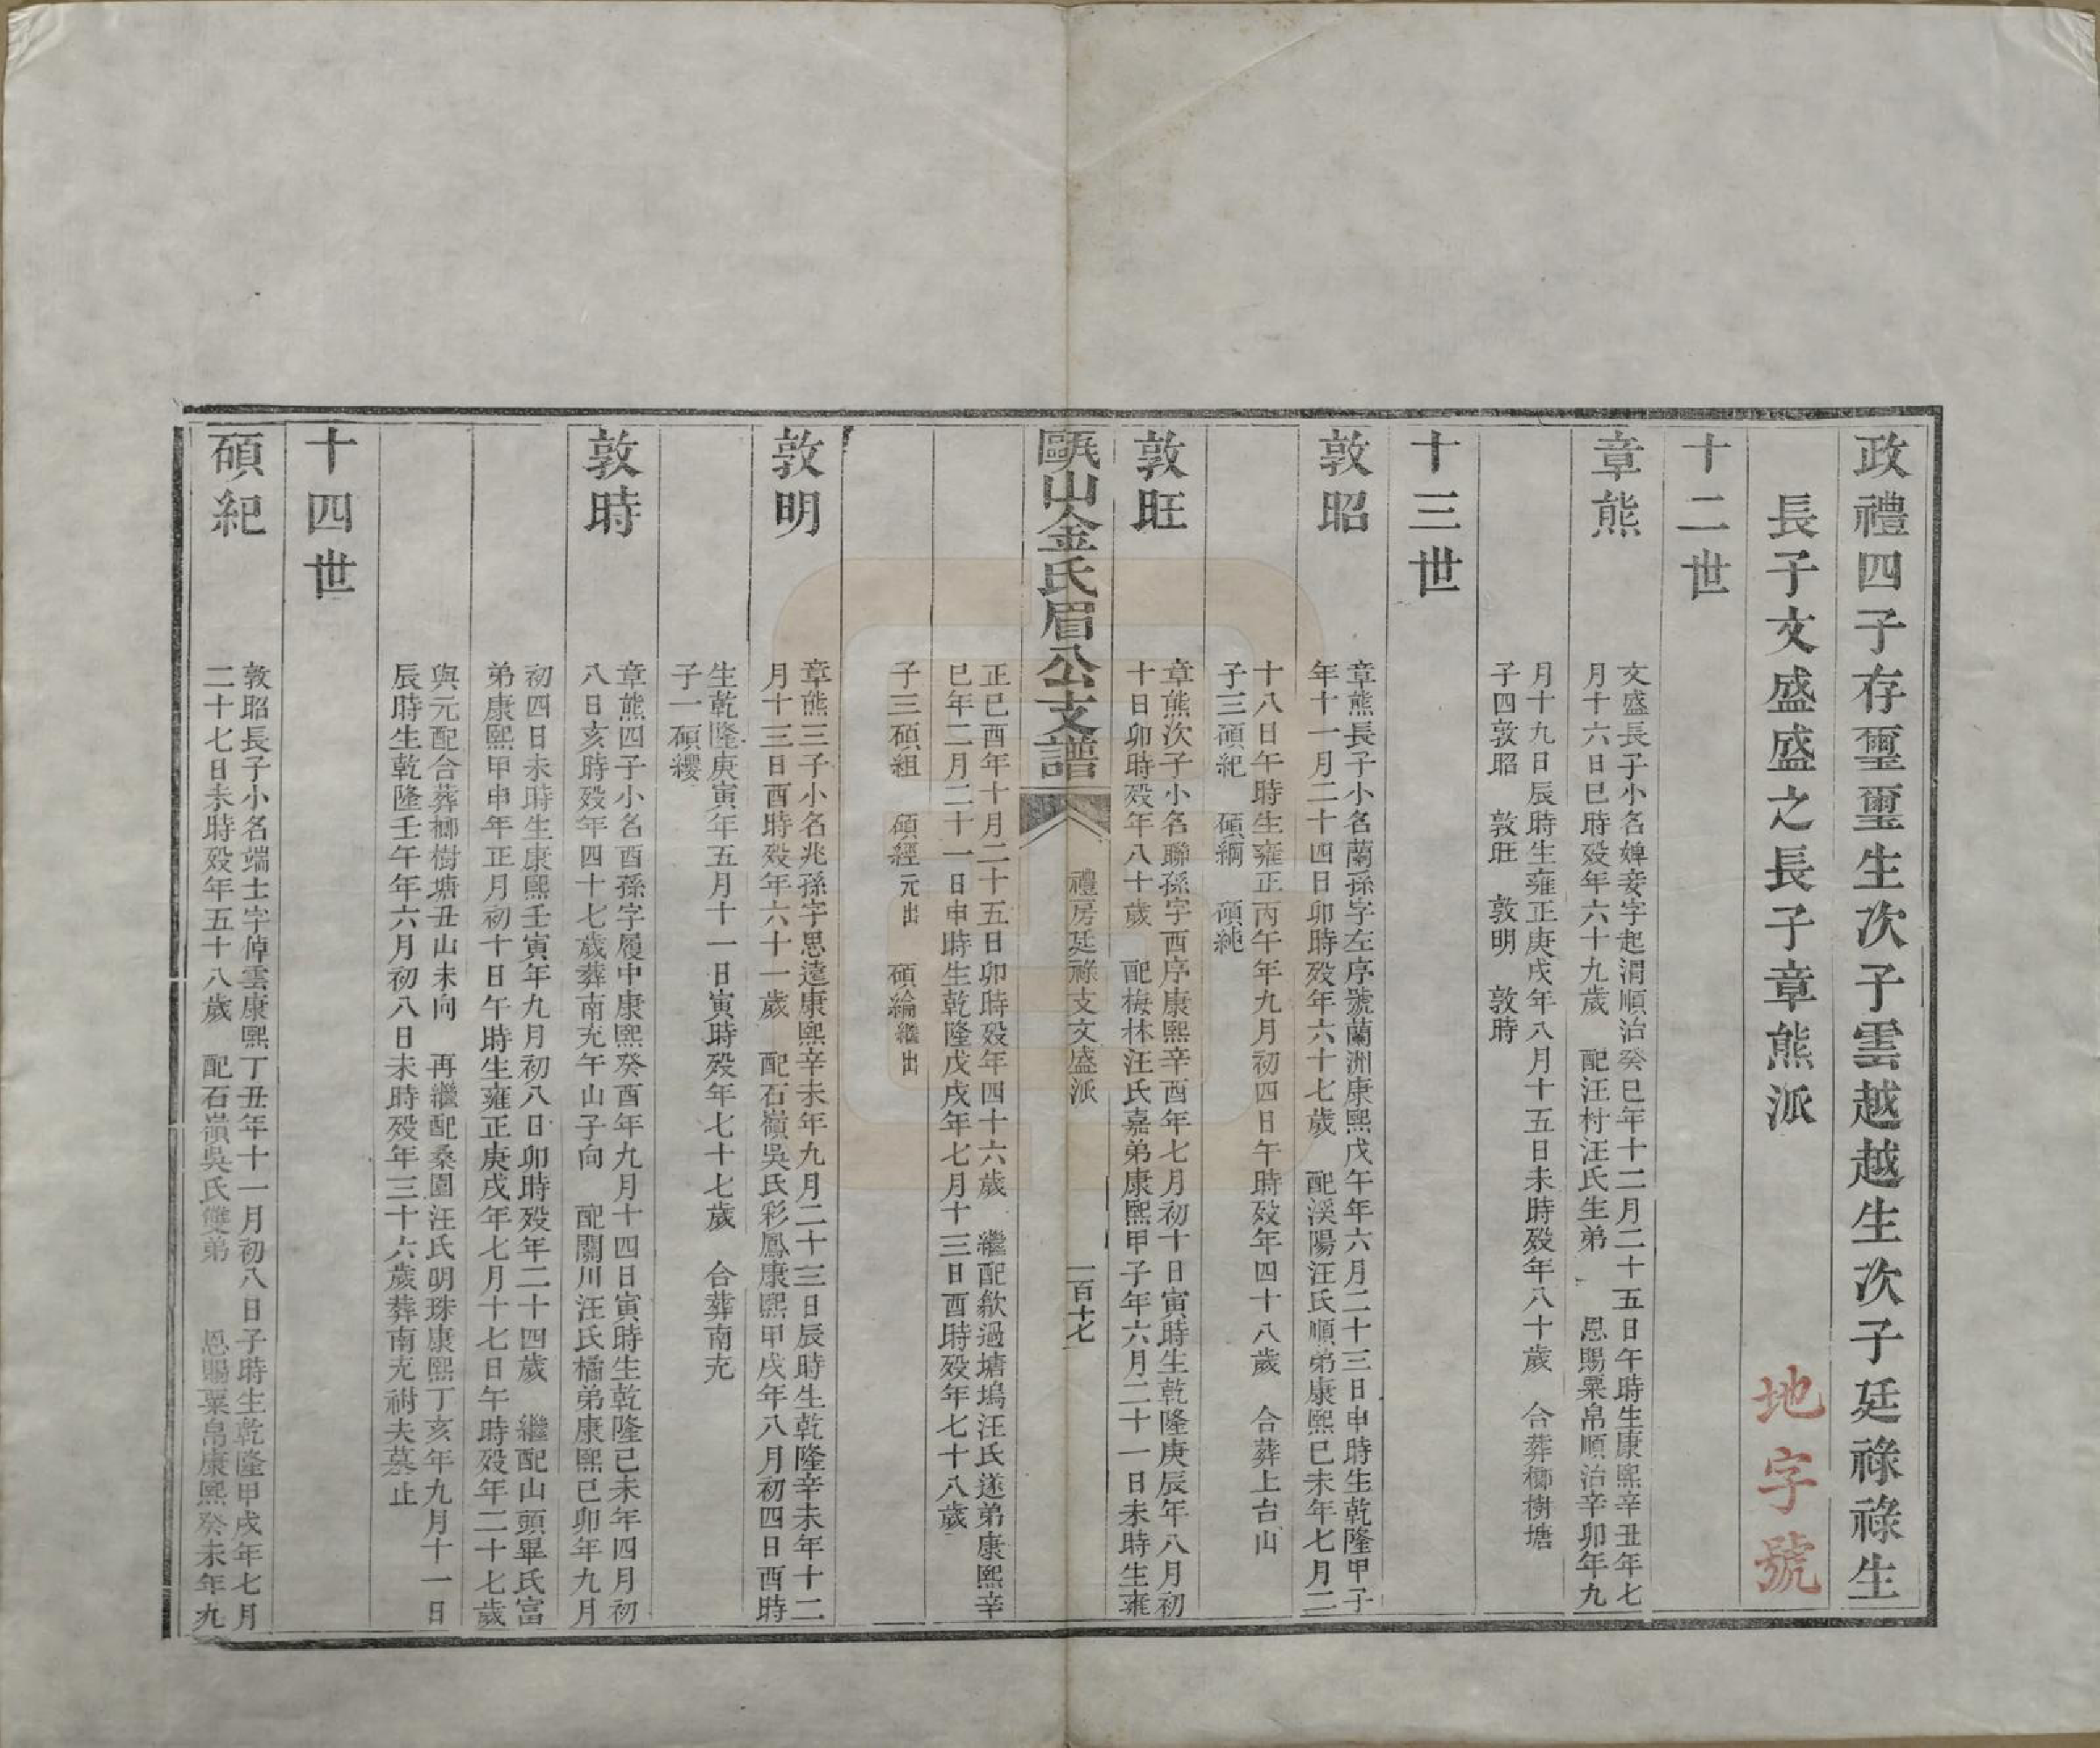 政禮四子存璽璽生次子雲越越生次子廷祿祿生
長子文盛盛之長子章熊派
地字號
十二世
章熊
文盛長子小名婢妾字起渭順治癸巳年十二月二十五日午時生康熙辛丑年七
月十六日巳時歿年六十九歲 配汪村汪氏生弟 恩賜粟帛順治辛卯年九
月十九日辰時生雍正庚戌年八月十五日未時歿年八十歲 合葬櫛樹塘
子四敦昭 敦旺 敦明 敦時
十三世
敦昭
章熊長子小名蘭孫字左序號蘭洲康熙戊午年六月二十三日申時生乾隆甲子
年十一月二十四日卯時歿年六十七歲 配溪陽汪氏順弟康熙己未年七月二
十八日午時生雍正丙午年九月初四日午時歿年四十八歲 合葬上台山
子三碩紀 碩綱 碩純
敦旺
章熊次子小名聯孫字西序康熙辛酉年七月初十日寅時生乾隆庚辰年八月初
十日卯時歿年八十歲 配梅林汪氏嘉弟康熙甲子年六月二十一日未時生雍
甌山金氏眉公支譜 禮房廷祿支文盛派 一百十七
正己酉年十月二十五日卯時歿年四十六歲 繼配歙過塘塢汪氏遂弟康熙辛
巳年二月二十一日申時生乾隆戊戌年七月十三日酉時歿年七十八歲
子三碩組 碩經元出 碩綸繼出
敦明
章熊三子小名兆孫字思遠康熙辛未年九月二十三日辰時生乾隆辛未年十二
月十三日酉時歿年六十一歲 配石嶺吳氏彩鳳康熙甲戌年八月初四日酉時
生乾隆庚寅年五月十一日寅時歿年七十七歲 合葬南充
子一碩纓
敦時
章熊四子小名酉孫字履中康熙癸酉年九月十四日寅時生乾隆己未年四月初
八日亥時歿年四十七歲葬南充午山子向 配關川汪氏橘弟康熙己卯年九月
初四日未時生康熙壬寅年九月初八日卯時歿年二十四歲 繼配山頭畢氏富
弟康熙甲申年正月初十日午時生雍正庚戌年七月十七日午時歿年二十七歲
與元配合葬櫛樹塘丑山未向 再繼配桑園汪氏明珠康熙丁亥年九月十一日
辰時生乾隆壬午年六月初八日未時歿年三十六歲葬南充祔夫墓止
十四世
碩紀
敦昭長子小名端士字倬雲康熙丁丑年十一月初八日子時生乾隆甲戌年七月
二十七日未時歿年五十八歲 配石嶺吳氏雙弟 恩賜粟帛康熙癸未年九